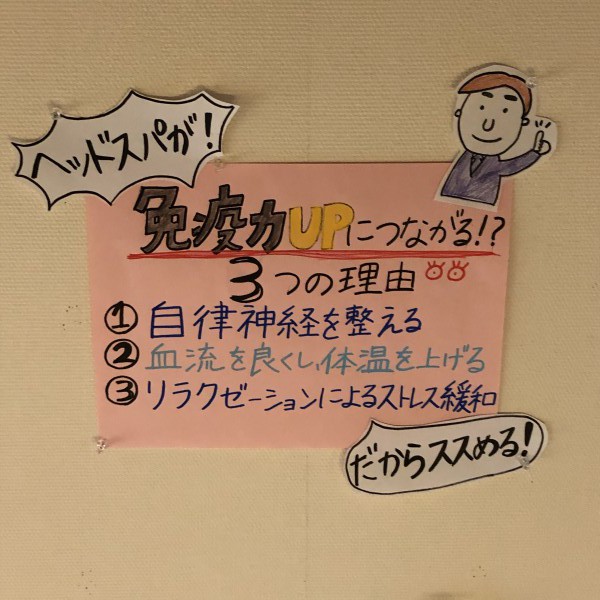 ヘッドスパが!
免疫力UPにつながる!?
3つの理由
① 自律神経を整える
② 血流を良くし、体温を上げる
③ リラクゼーションによるストレス緩和
だからススめる!